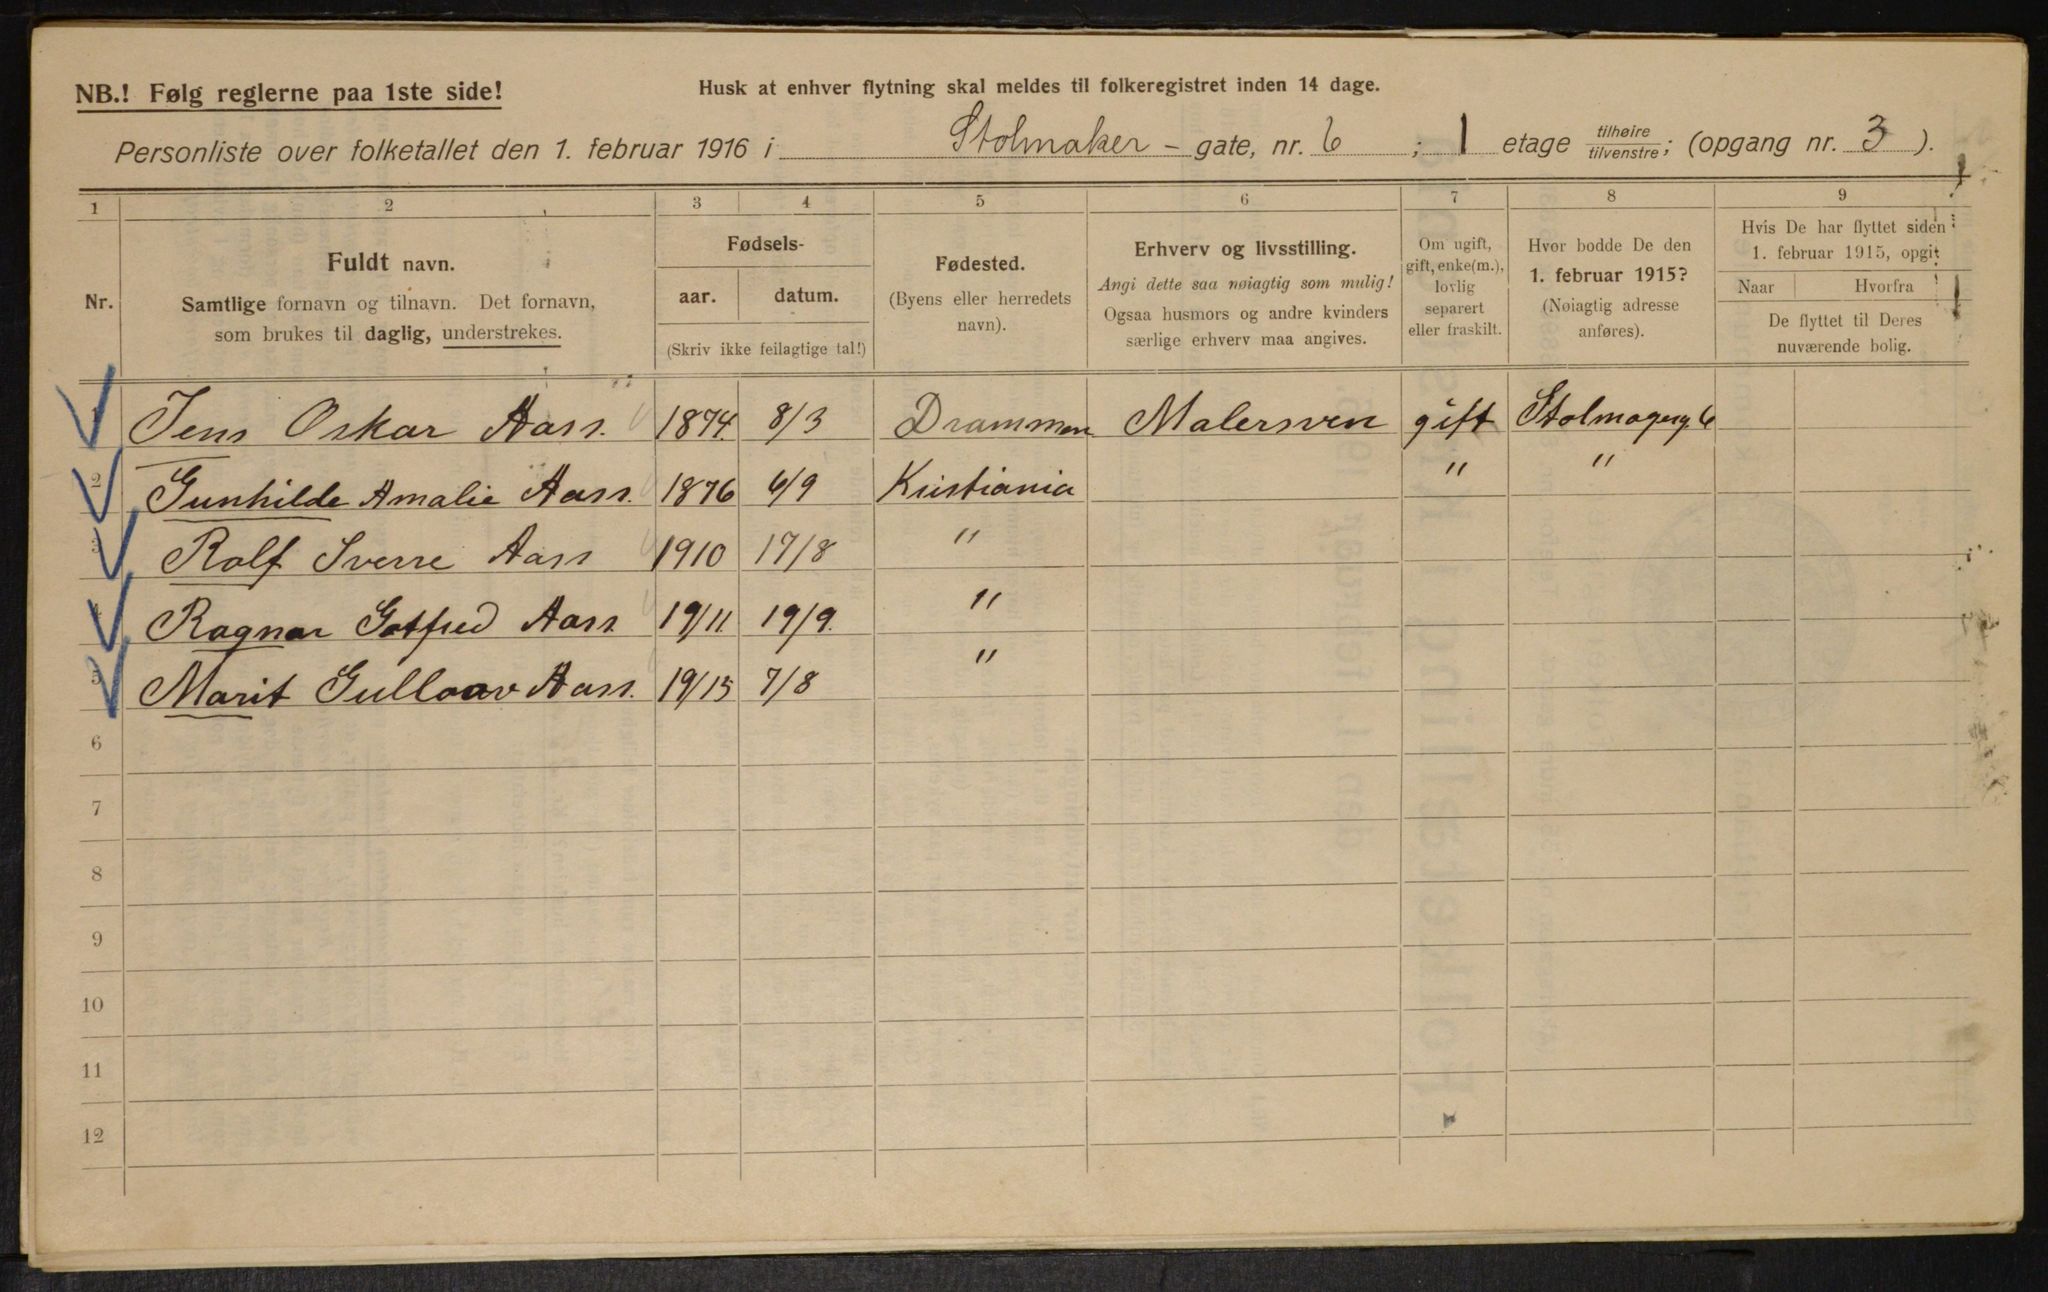 NB.! Følg reglerne paa 1ste side!
Husk at enhver flytning skal meldes til folkeregistret inden 14 dage.
Personliste over folketallet den 1. februar 1916 i Stolmaker - gate, nr. 6 ; 1 etage tilhøire/tilvenstre; (opgang nr. 3 ).
1 2 3 4 5 6 7 8 9
Nr.
Fuldt navn.
Samtlige fornavn og tilnavn. Det fornavn,
som brukes til daglig, understrekes.
Fødsels-
aar. datum.
(Skriv ikke feilagtige tal!)
Fødested.
(Byens eller herredets
navn).
Erhverv og livsstilling.
Angi dette saa nøiagtig som mulig!
Ogsaa husmors og andre kvinders
særlige erhverv maa angives.
Om ugift,
gift, enke(m.),
lovlig
separert
eller fraskilt.
Hvor bodde De den
1. februar 1915?
(Nøiagtig adresse
anføres).
Hvis De har flyttet siden
1. februar 1915, opgit
Naar Hvorfra
De flyttet til Deres
nuværende bolig.
1 Jens Oskar Aass. 1874. 8/3 Drammen Malersven gift Stolmagerg. 6
2 Gunhilde Amalie Aass. 1876 6/9 Kristiania " "
3 Rolf Sverre Aass 1910 17/8 "
4 Ragnar Gotfred Aass. 19/11. 19/9. "
5 Marit Gullaav Aass. 19/15 7/8 "
6
7
8
9
10
11
12